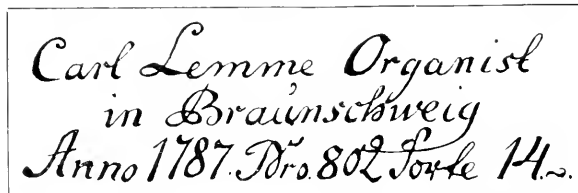 Carl Lemme Organist
in Braunschweig
Anno 1787. Nro. 802 Sorte 14.